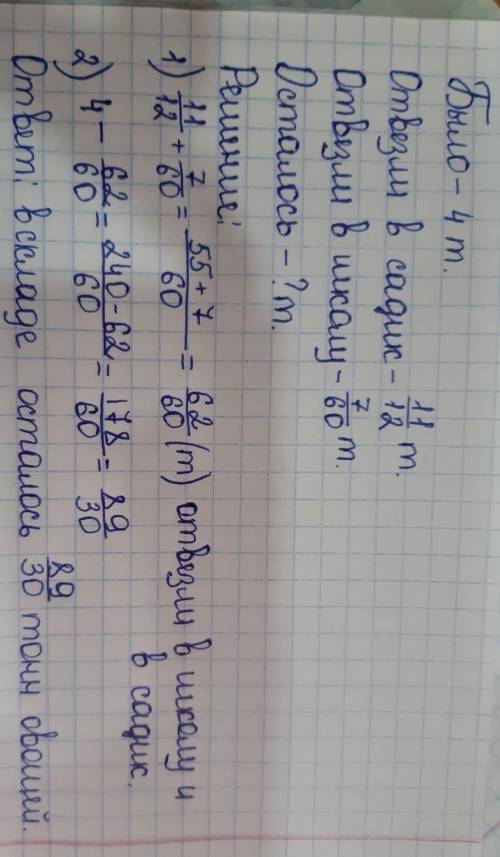 Было - 4 т.
Отвезли в садик - 11/12 т.
Отвезли в школу - 7/60 т.
Осталось - ? т.
Решение:
1) 11/12 + 7/60 = 55 + 7/60 = 62/60 (т) отвезли в школу и
в садик.
2) 4 - 62/60 = 240 - 62/60 = 178/60 = 89/30
Ответ: в складе осталось 89/30 тонн овощей.